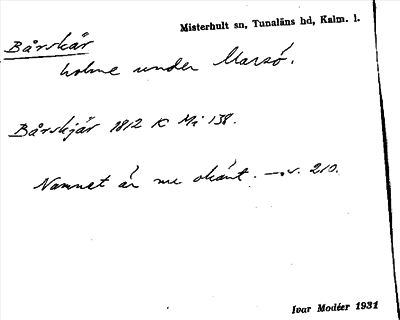 Misterhult sn, Tunaläns hd, Kalm. l.
Bårskär
holme under Marsö.
Bårskjär 1812 K Mi 138.
Namnet är nu okänt. –. v. 210.
Ivar Modéer 1931